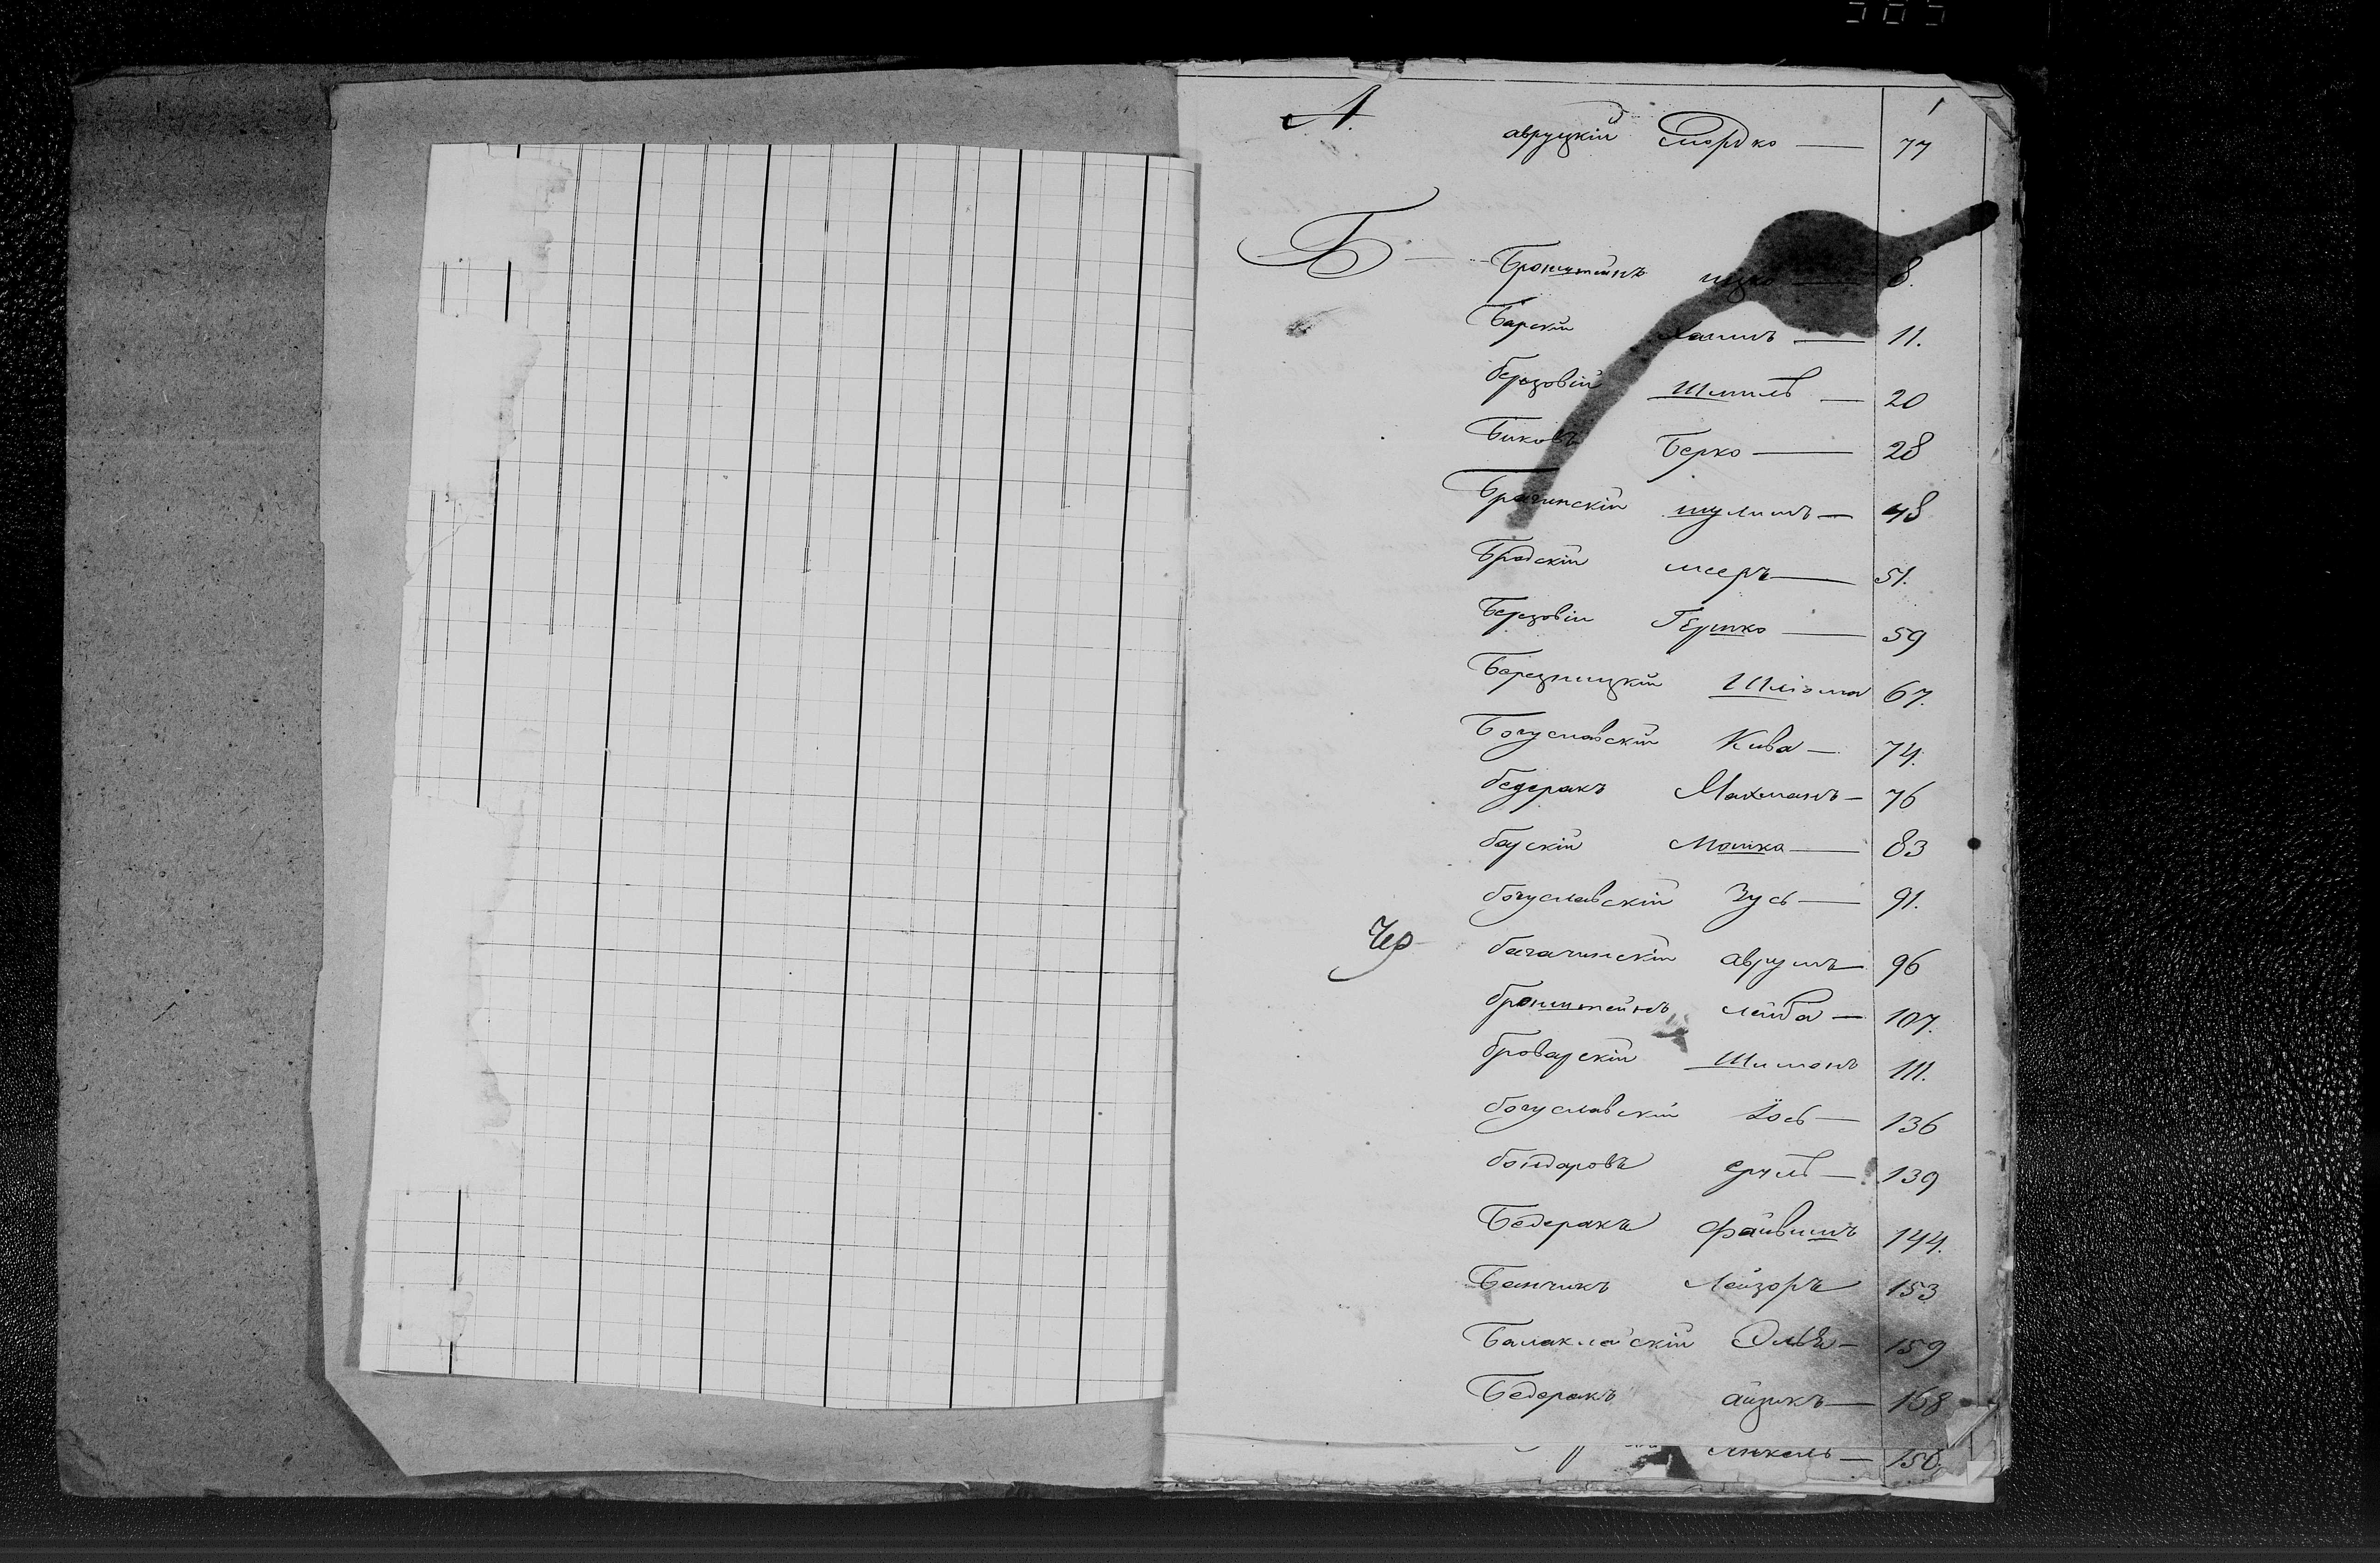 А. 1
авруцкій Мордко — 77
Б — Бронштейнъ ицко — 8.
Барскій Хаимъ — 11.
березовій Шмиль — 20
Биковъ Берко — 28
Брагинскій шулимъ — 48
Бродскій мееръ — 51.
Березовій Гершко — 59
Березницкій Шліома 67.
Богуславскій Кива — 74.
бедеракъ Нахманъ — 76
барскій Мошко — 83
богуславскій Зусь — 91.
Чер
аврумъ — 96
бронштейнъ лейба — 107.
броварскій Шимонъ 111.
богуславскій Іось — 136
бондаровъ сруль — 139
Бедеракъ Файвишъ 144.
Банчикъ Лейзоръ 153
Балаклайскій — 159
Бедеракъ айзикъ — 168
Янкель — 150.